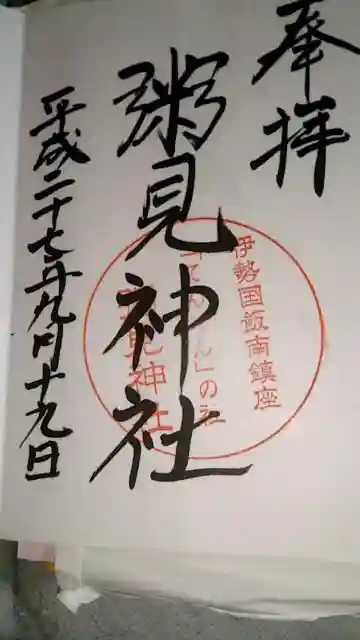 奉拝
粥見神社
平成二十七年九月十九日
伊勢国飯南鎮座
」の社
見神社